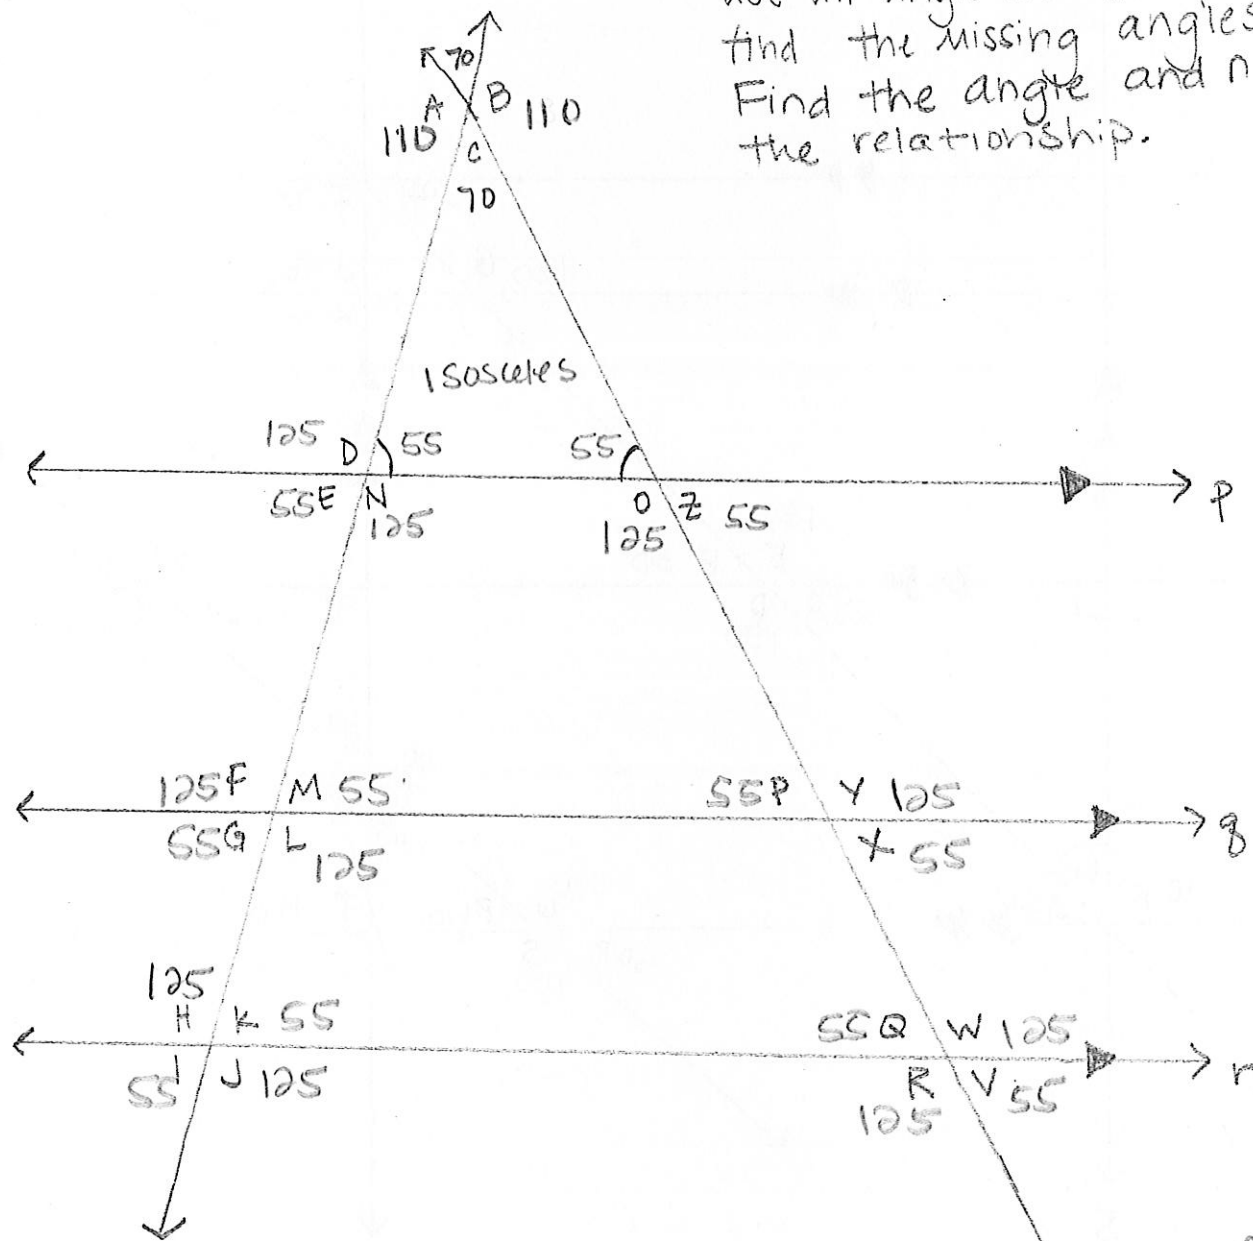 find the missing angles
Find the angle and
the relationship.
70
A B 110
110
C
70
Isosceles
125 D 55 55
55 E N O Z 55 p
125 125
125 F M 55 55 P Y 125
55 G L X 55 q
125
125
H K 55 55 Q W 125
55 I J 125 R V 55 r
125